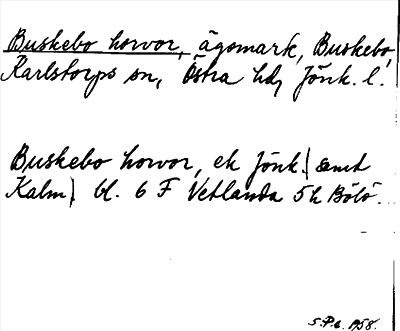 Buskebo horvor, ägomark, Buskebo,
Karlstorps sn, Östra hd, Jönk. l.
Buskebo horvor, ek Jönk. (samt
Kalm) bl. 6 F Vetlanda 5 h Bölö.
S.P-g. 1958.